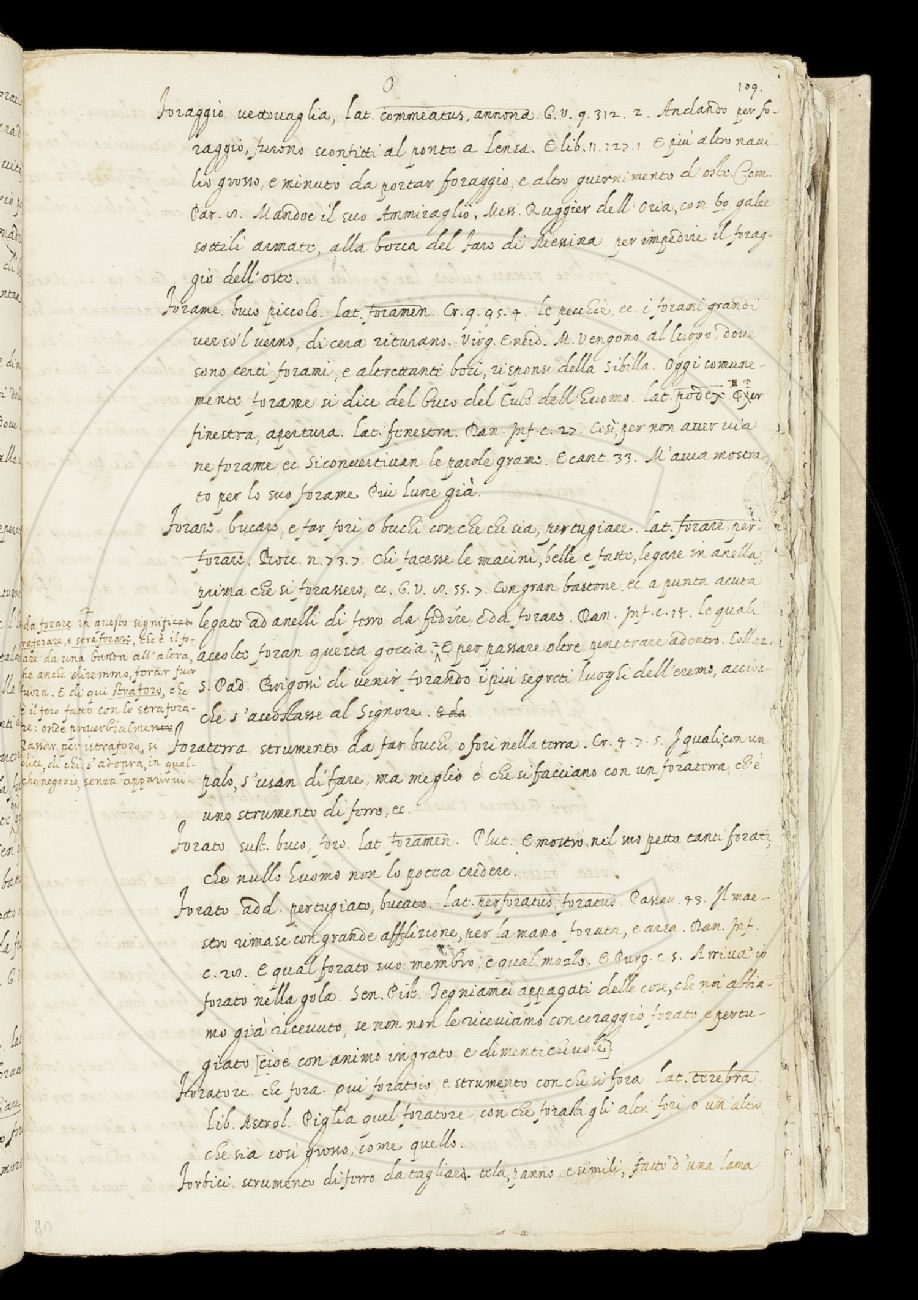 O
109.
Foraggio vettovaglia, lat. commeatus, annona. G.V. 9. 312. 2. Andando per fo-
raggio, furono sconfitti al ponte a Lensa. E lib. 11. 127. 1. E più altro navi
lio grosso, e minuto da portar foraggio, e altro guernimento d'oste. Com.
Par. 8. Mandoe il suo Ammiraglio, Mess. Ruggier dell'Oria, con 60 galee
sottili armate, alla bocca del faro di Messina per impedire il forag-
gio dell'oste.
Forame. buco piccolo. Lat. foramen. Cr. 9. 95. 4. le pecchie, ec. i forami grandi
verso 'l verno, di cera riturano. Virg. Eneid. M. Vengono al luogo, dove
sono cento forami, e altrettante boci, risponsi della Sibilla. Oggi comune-
mente forame si dice del buco del Culo dell'Huomo. Lat. podex. Per
finestra, apertura. Lat. fenestra. Dan. Inf. c. 27. Così per non aver via
ne forame ec. Si convertivan le parole grame. E cant. 33. M'avea mostra-
to per lo suo forame Più lune già.
Forare. bucare, e far fori o buchi con che che sia, pertugiare. Lat. forare, per
forare. Bocc. n. 73. 7. Chi facesse le macini, belle e fatte, legare in anella,
prima che si forassero, ec. G.V. 8. 55. 7. Con gran bastone ec. a punta acuta
legato ad anelli di ferro da fedire, e da forare. Dan. Inf. c. 14. le quali
accolte foran questa goccia. E per passare oltre, penetrare adentro. Coll. 2.
5. Pad. Guigossi di venir forando i più segreti luoghi dell'eremo, accioc-
che s'accostasse al Signore. E da
da forare in questo significa
traforare, e straforare, che è il fo-
rare da una banda all'altra,
che anche diremmo, forar fuor
fuora. E di qui straforo, che
è il foro fatto con lo strafora-
re: onde proverbialmente
Passar per istraforo, si
dice, di chi s'adopra, in qual-
che negozio, senza apparirvi
Foraterra strumento da far buchi, o fori nella terra. Cr. 4. 7. 5. I quali, con un
palo, s'usan di fare, ma meglio è che si facciano con un foraterra, ch'è
uno strumento di ferro, ec.
Forato sust. buco, foro. lat. foramen. Plut. E mostrò nel suo petto tanti forati,
che nullo huomo non lo potea credere.
Forato add. pertugiato, bucato. Lat. perforatus, foratus. Passav. 43. Il mae-
stro rimase con grande afflizione, per la mano forata, e arsa. Dan. Inf.
c. 28. E qual forato suo membro, e qual mozzo. E Purg. c. 5. Arriva' io
forato nella gola. Sen. Pist. Tegniamci appagati delle cose, che noi abbia-
mo già ricevuto, se non non le riceviamo con coraggio forato e pertu-
giato [cioè con animo ingrato, e dimentichevole]
Foratore che fora. qui foratoio e strumento con che si fora. Lat. terebra.
Lib. Astrol. Piglia quel foratore, con che forasti gli altri fori, o un'altro
che sia così grosso, come quello.
Forbici. strumento di ferro da tagliare tela, panno e simili, fatto d'una lama